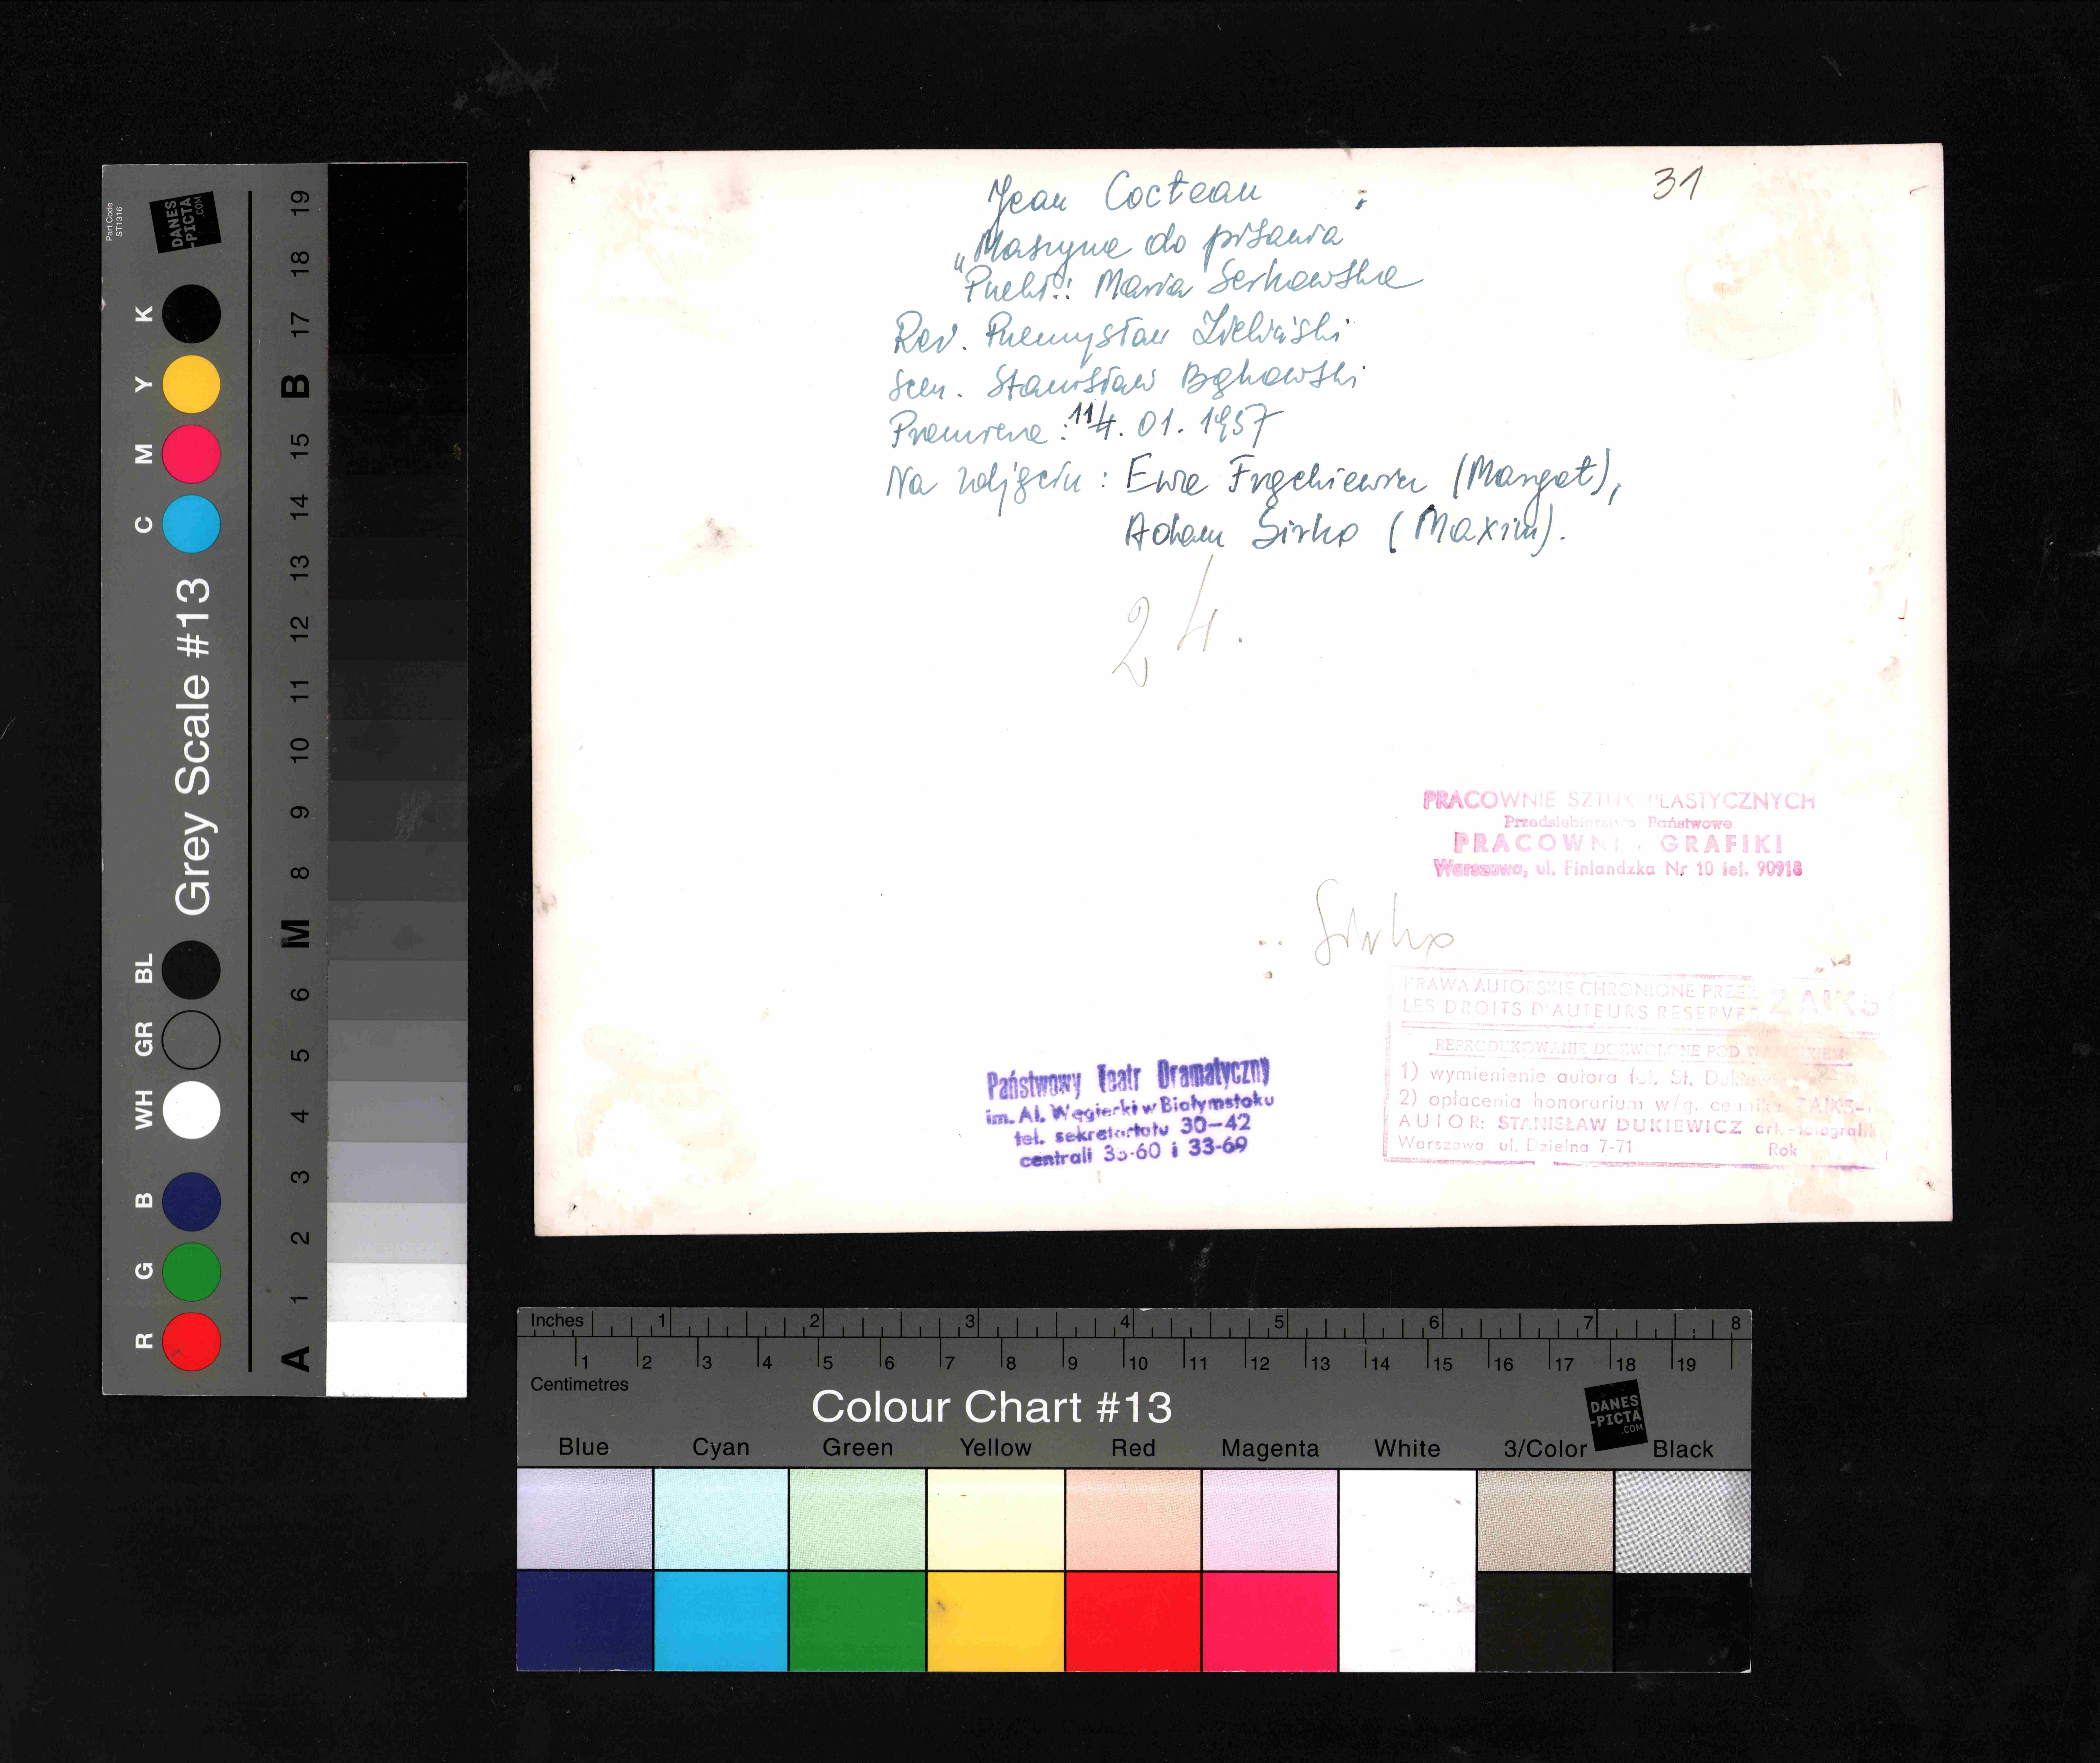 Jean Cocteau
31
„Maszyna do pisania
Przekł.: Maria Serkowska
Reż. Przemysław Zieliński
Scen. Stanisław Bąkowski
Premiera: 14. 01. 1957
Na zdjęciu: Ewa (Margot),
Adam Sirko (Maxim).
24.
PRACOWNIE SZTUK PLASTYCZNYCH
Przedsiębiorstwo Państwowe
PRACOWNIA GRAFIKI
Warszawa, ul. Finlandzka Nr 10 tel. 90918
Sirko
PRAWA AUTORSKIE CHRONIONE PRZEZ ZAIKS
LES DROITS D'AUTEURS RESERVES
REPRODUKOWANIE DOZWOLONE POD WARUNKIEM
1) wymienienie autora fot. St. Dukiewicz
2) opłacenia honorarium w/g. cennika ZAIKS-u
AUTOR: STANISŁAW DUKIEWICZ art.-fotografik
Warszawa ul. Dzielna 7-71 Rok
Państwowy Teatr Dramatyczny
im. Al. Węgierki w Białymstoku
tel. sekretariatu 30-42
centrali 33-60 i 33-69
Part Code
ST1316
DANES
-PICTA
.COM
Grey Scale #13
R G B WH GR BL C M Y K
A 1 2 3 4 5 6 M 8 9 10 11 12 13 14 15 B 17 18 19
Inches 1 2 3 4 5 6 7 8
1 2 3 4 5 6 7 8 9 10 11 12 13 14 15 16 17 18 19
Centimetres
Colour Chart #13
DANES
-PICTA
.COM
Blue Cyan Green Yellow Red Magenta White 3/Color Black